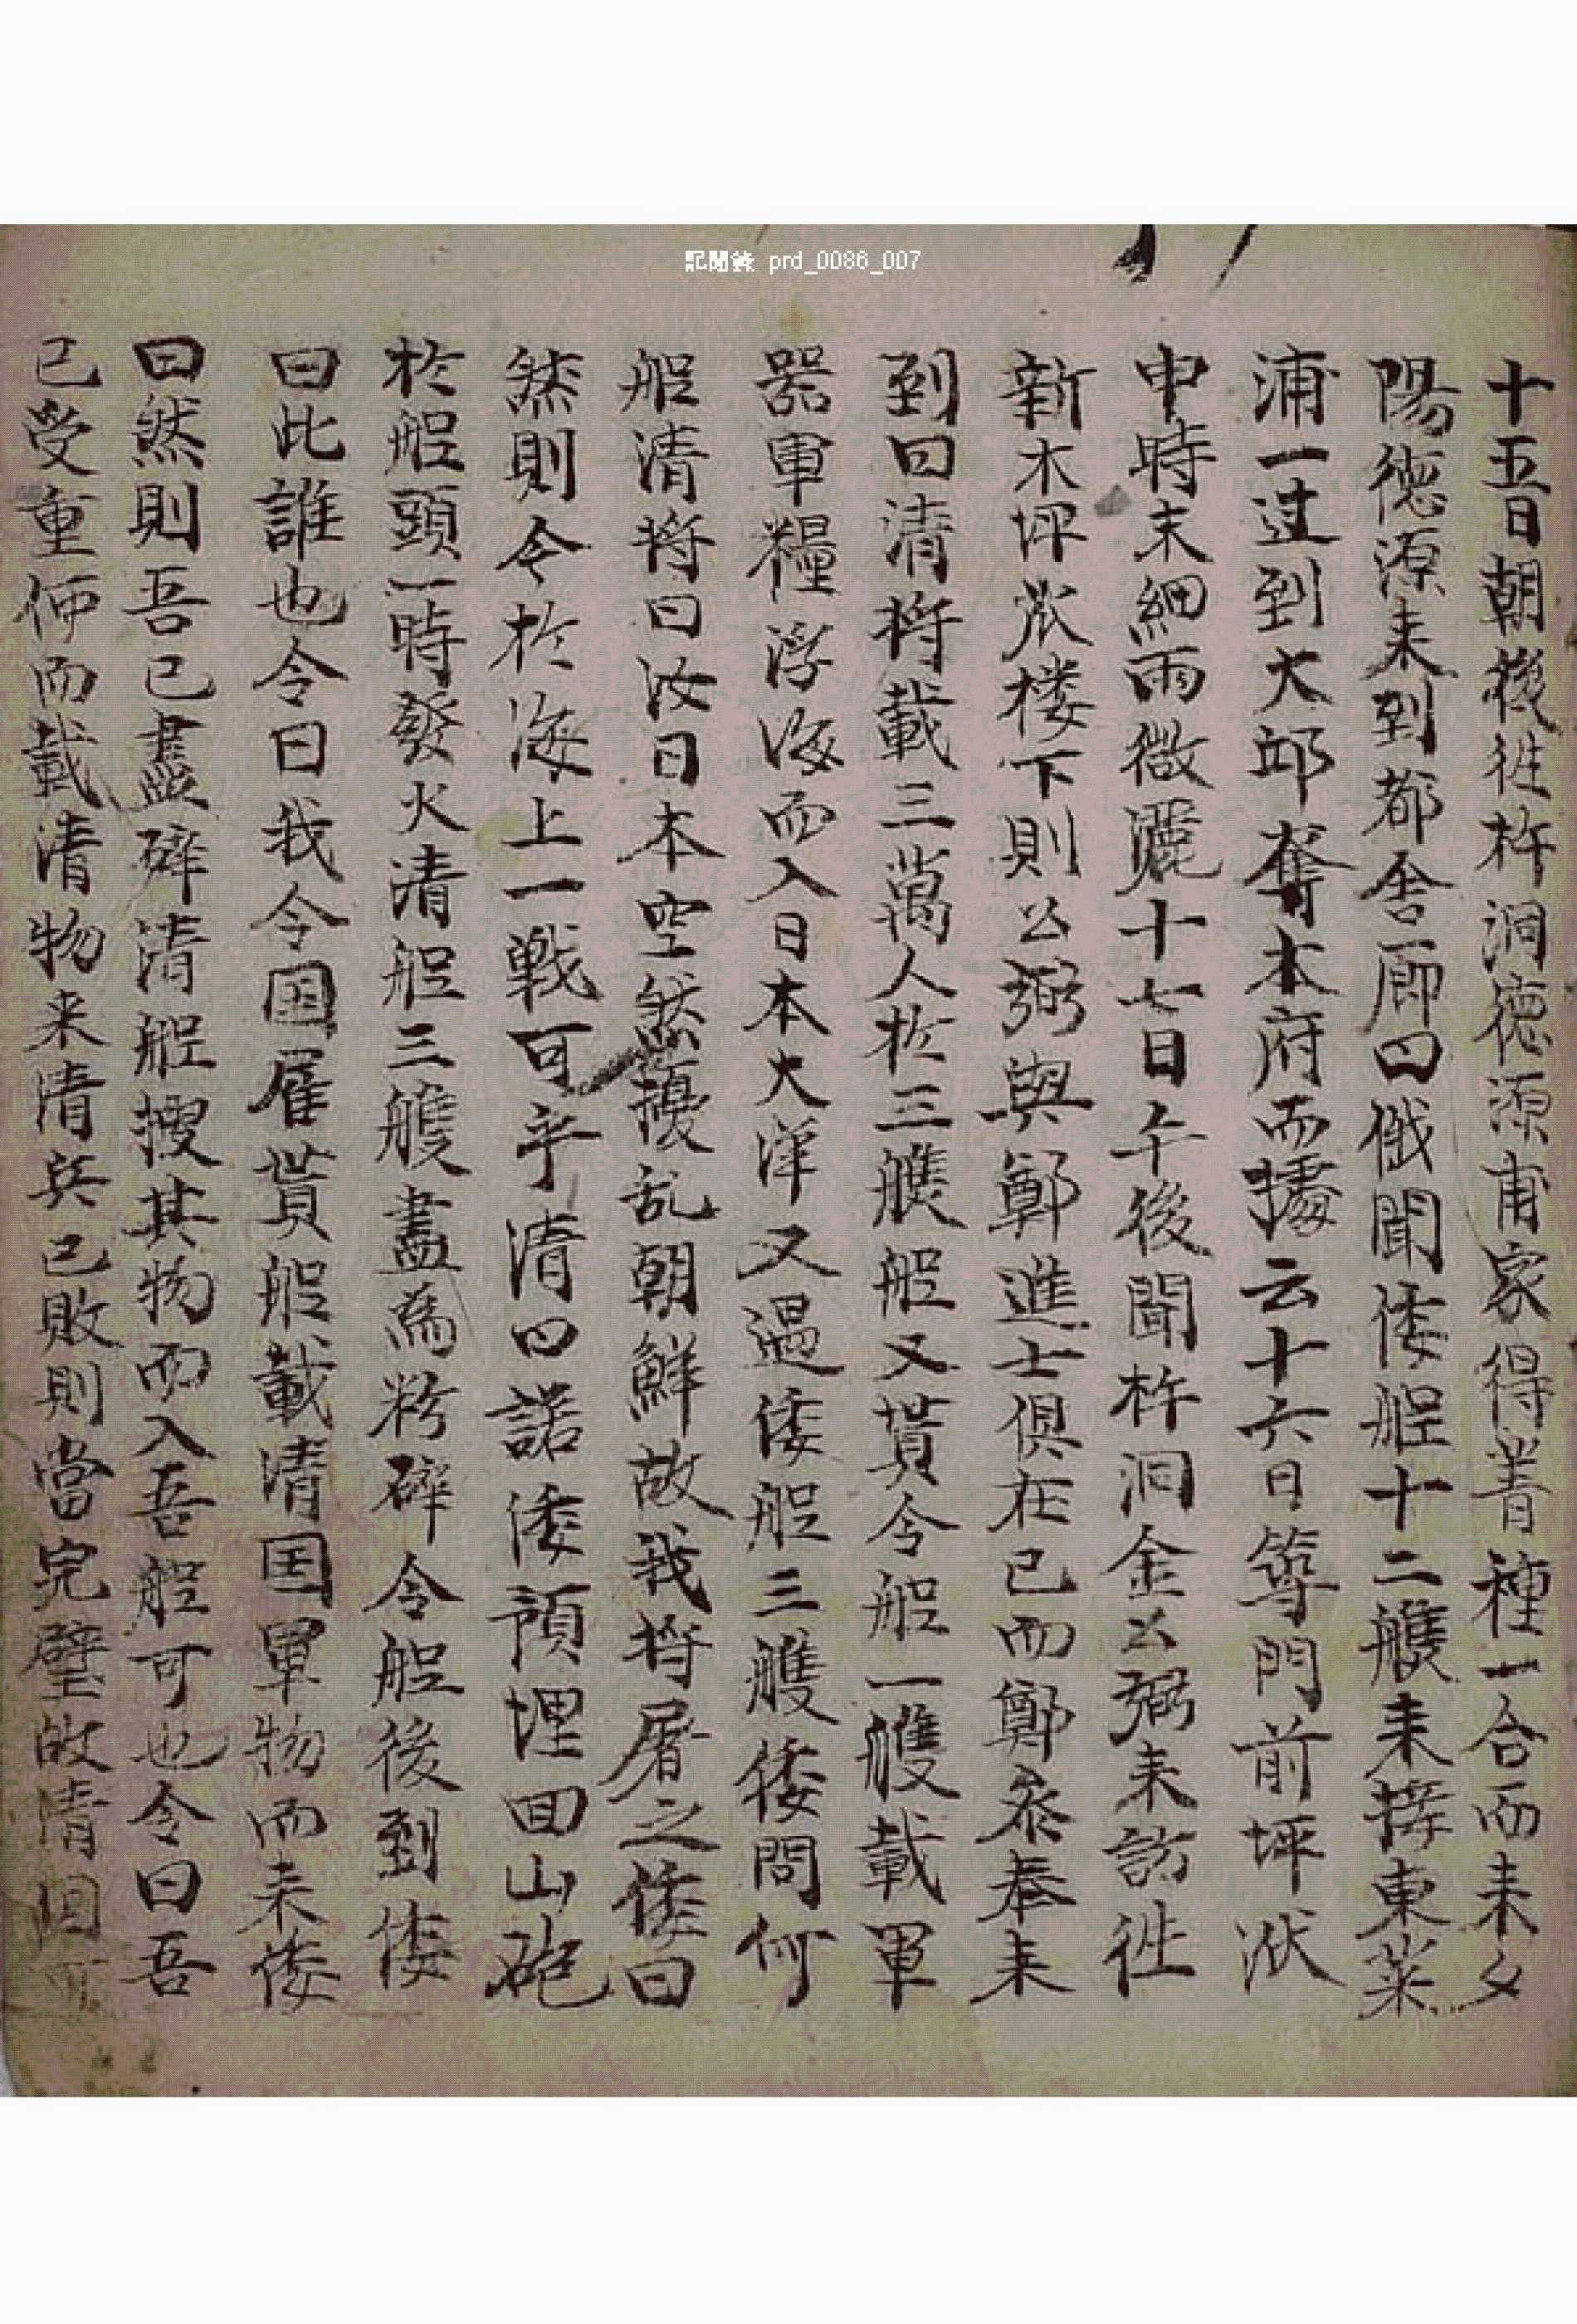 記聞錄 prd_0086_007
十五日朝後徃杵洞德源甫家得菁種一合而来夕
陽德源来到都舍廊曰俄聞倭舡十二艘来撑東萊
浦一过到大邱奪本府而據云十六日篿門前坪洑
申時末細雨微灑十七日午後聞杵洞金公弼来訪徃
新木坪瓜楼下則公弼與鄭進士俱在已而鄭叅奉来
到曰清將載三萬人於三艘舡又貰令舡一艘載軍
器軍糧浮海而入日本大洋又過倭舡三艘倭問何
舡清將曰汝日本空然擾乱朝鮮故我將屠之倭曰
然則今於海上一戰可乎清曰諾倭預埋回山砲
於舡頭一時發火清舡三艘盡為粉碎令舡後到倭
曰此誰也令曰我令国雇貰舡載清国軍物而来倭
曰然則吾已盡碎清舡搜其物而入吾舡可也令曰吾
已受重価而載清物来清兵已敗則當完璧故清国可